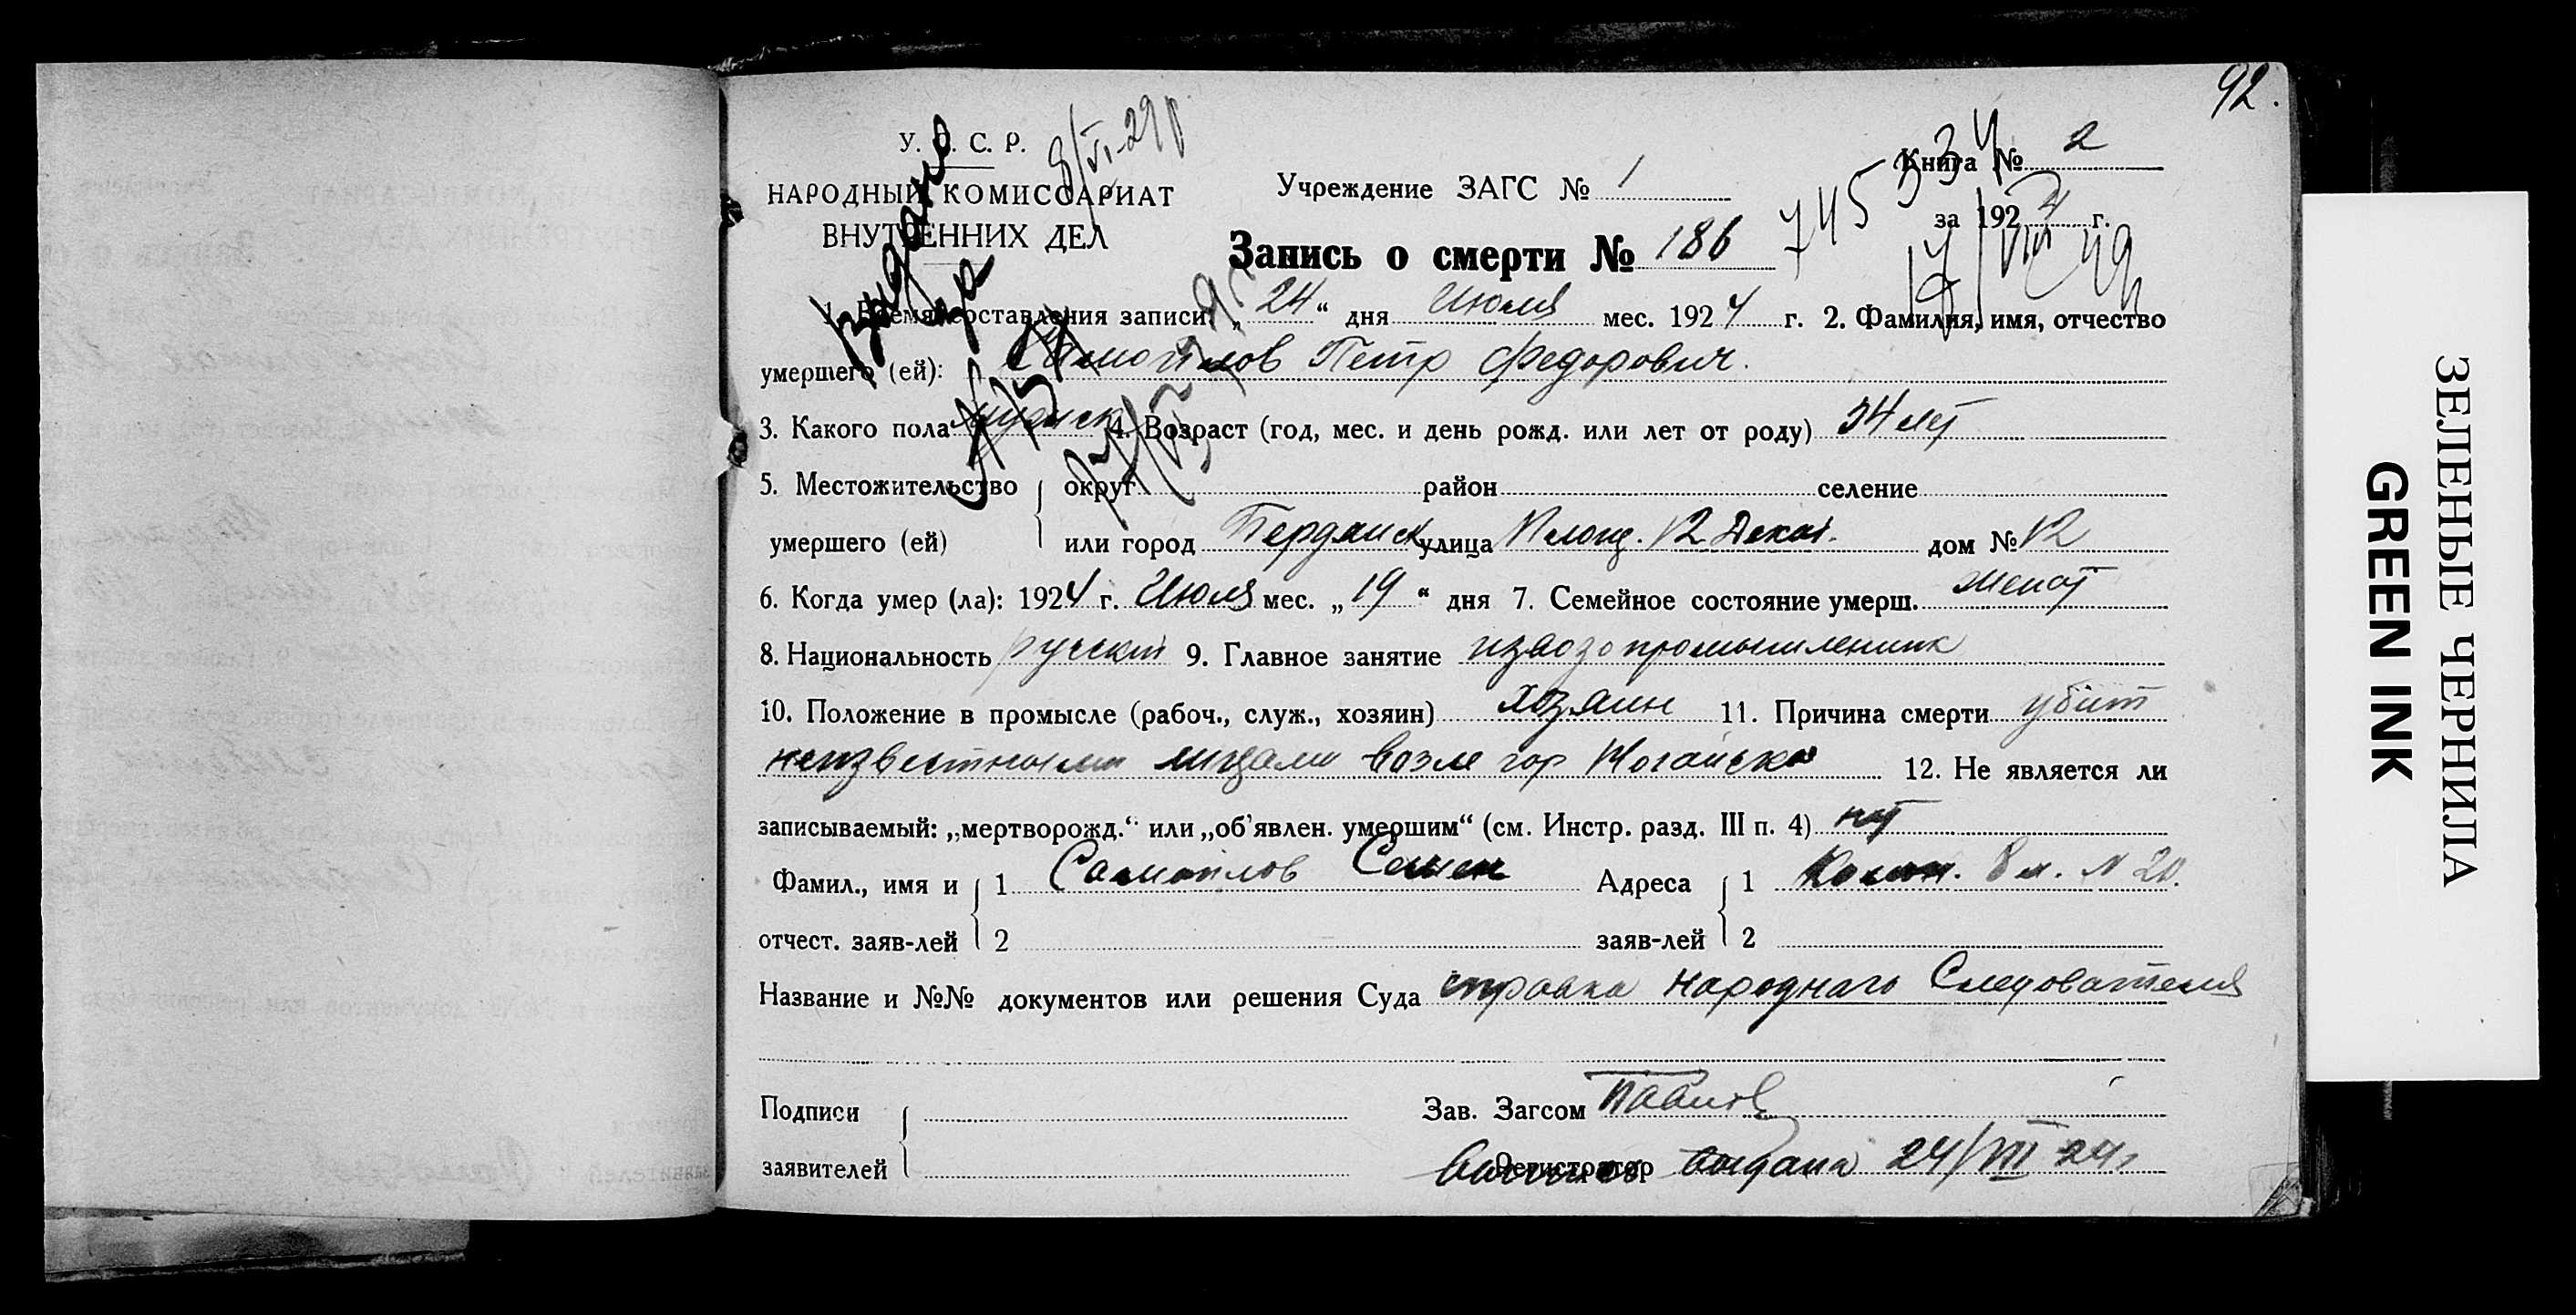 92.
У. С. С. Р.
НАРОДНЫЙ КОМИССАРИАТ
ВНУТРЕННИХ ДЕЛ
8/VI-29 г
Выдано
Учреждение ЗАГС № 1
Книга № 2
за 1924 г.
Запись о смерти № 186
1. Время составления записи „24“ дня Июля мес. 1924 г. 2. Фамилия, имя, отчество
умершего (ей): Самойлов Петр Федорович.
3. Какого пола мужск 4. Возраст (год, мес. и день рожд. или лет от роду) 34 лет
5. Местожительство округ район селение
умершего (ей) или город Бердянск улица Площ. 12 Декаб. дом № 12
6. Когда умер (ла): 1924 г. Июля мес. „19“ дня 7. Семейное состояние умерш. женат
8. Национальность русский 9. Главное занятие извозопромышленник
10. Положение в промысле (рабоч., служ., хозяин) хозяин 11. Причина смерти убит
неизвестными лицами возле гор Ногайска 12. Не является ли
записываемый: „мертворожд.“ или „об'явлен. умершим“ (см. Инстр. разд. III п. 4) нет
Фамил., имя и 1 Самойлов Семен Адреса 1 № 20.
отчест. заяв-лей 2 заяв-лей 2
Название и №№ документов или решения Суда справка Народнаго Следователя
Подписи Зав. Загсом Павлов
заявителей Регистратор выдана 24/VII 24 г
ЗЕЛЕНЫЕ ЧЕРНИЛА
GREEN INK